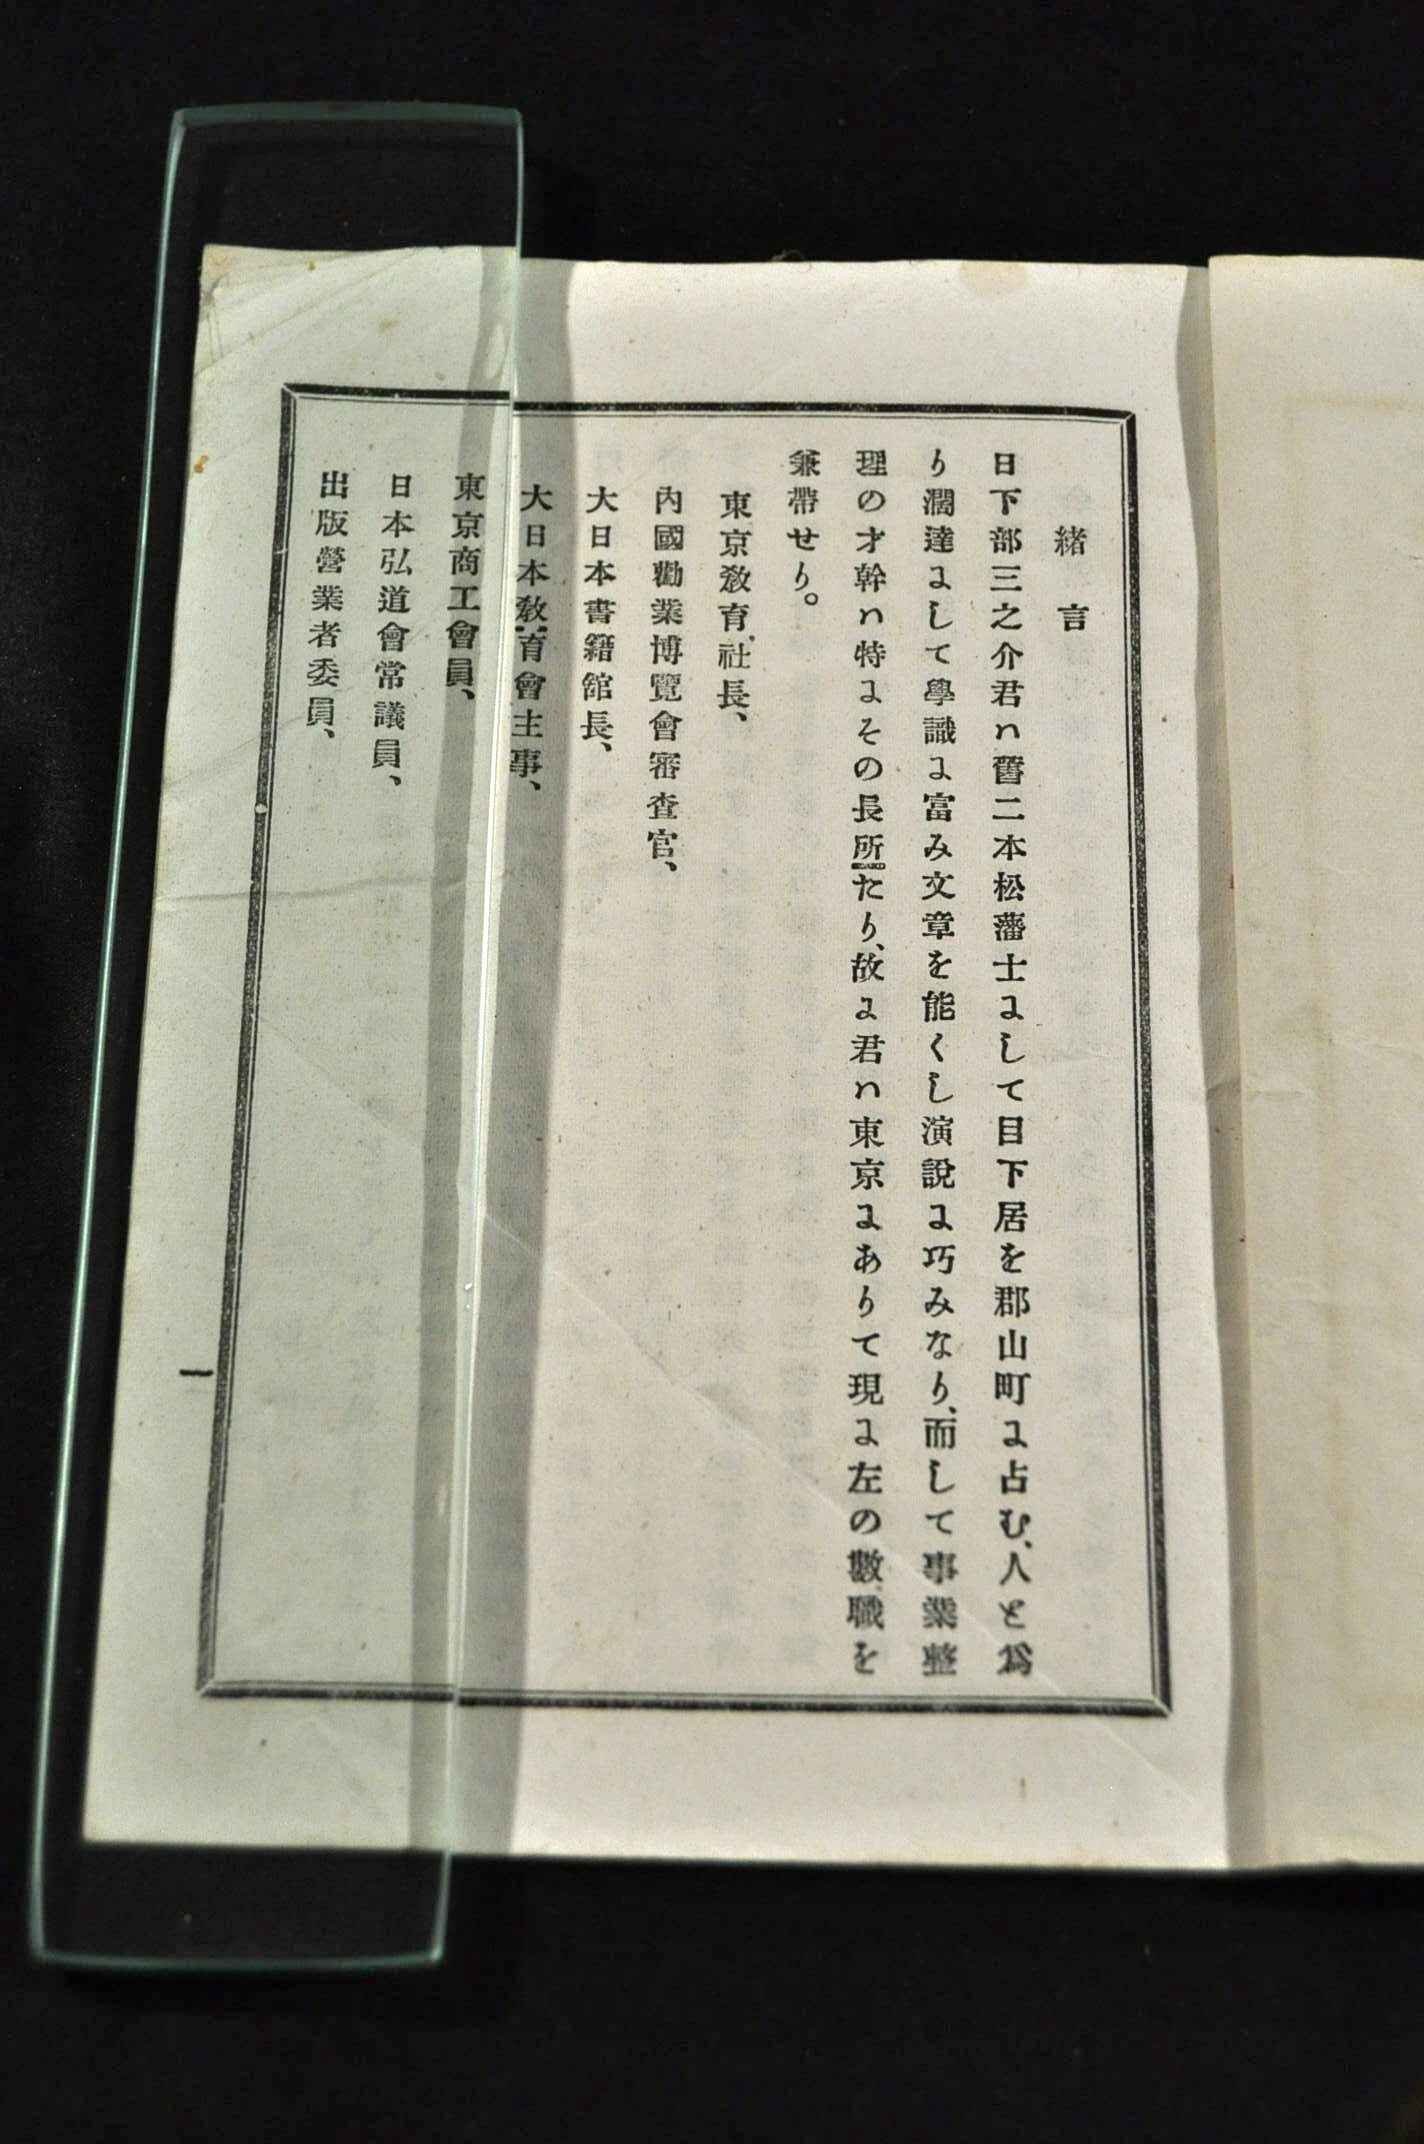 緒言
日下部三之介君ハ舊二本松藩士にして目下居を郡山町に占む、人と爲
り濶達にして學識に富み文章を能くし演説に巧みなり、而して事業整
理の才幹ハ特にその長所たり、故に君ハ東京にありて現に左の數職を
兼帶せり。
東京敎育社長、
內國勸業博覽會審査官、
大日本書籍館長、
大日本敎育會主事、
東京商工會員、
日本弘道會常議員、
出版營業者委員、
一